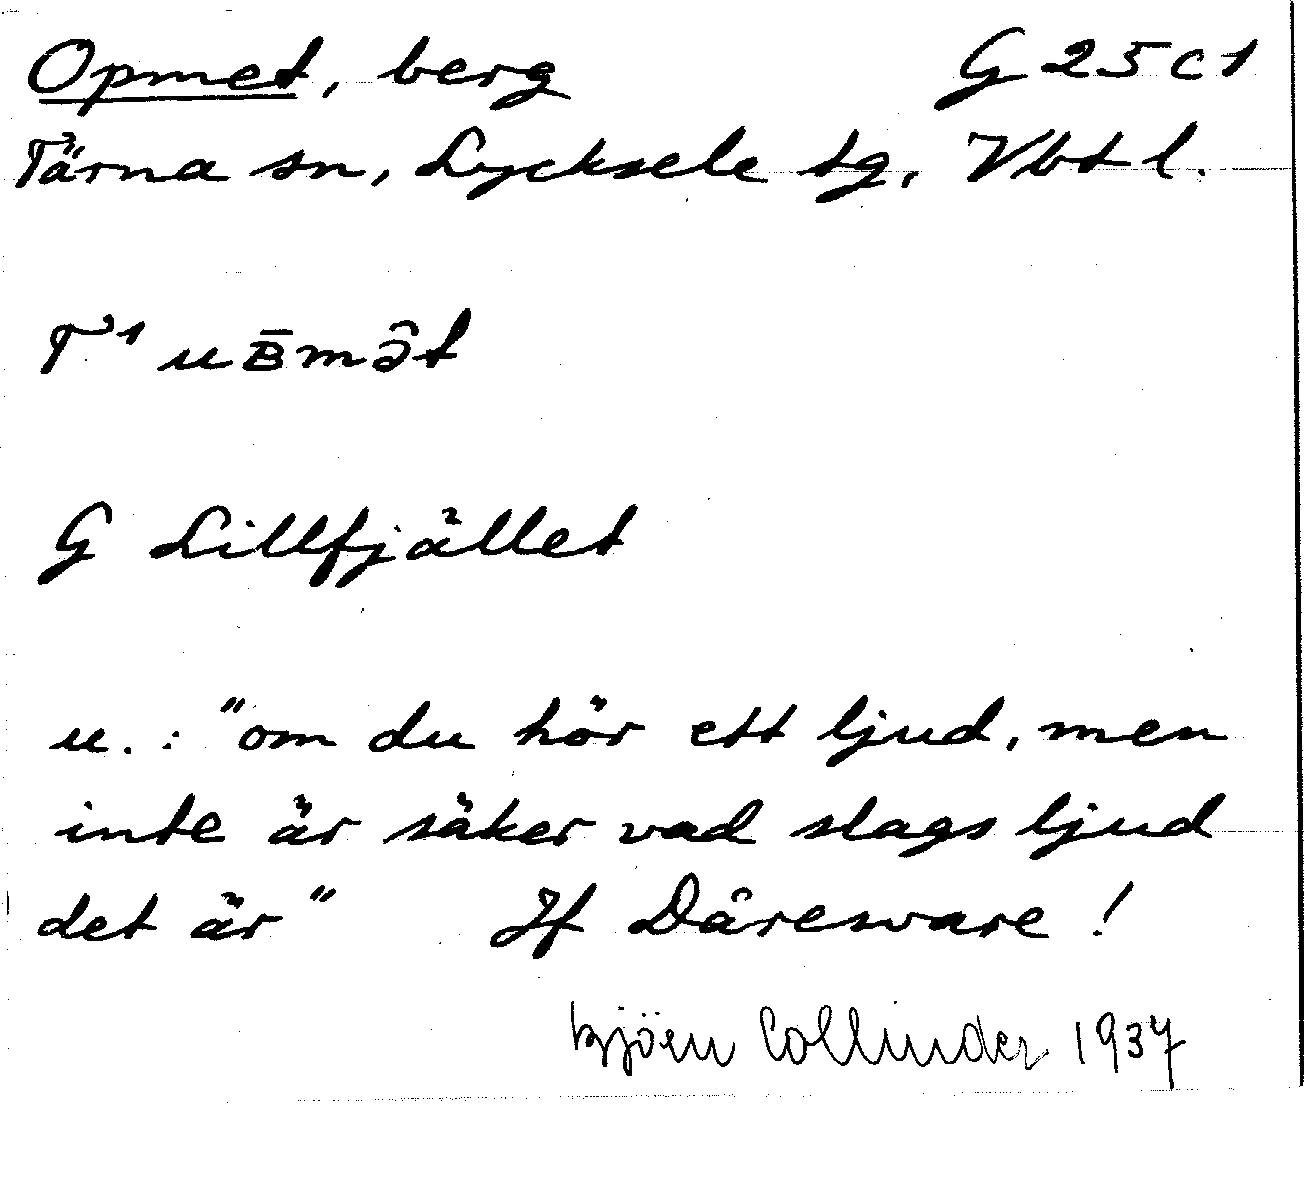 Opmet, berg G 25 c 1
Tärna sn, Lycksele tg, Vbt l.
T¹ uʙ̄mə̑t
G Lillfjället
u. : "om du hör ett ljud, men
inte är säker vad slags ljud
det är" Jf Dåresware !
Björn Collinder 1937